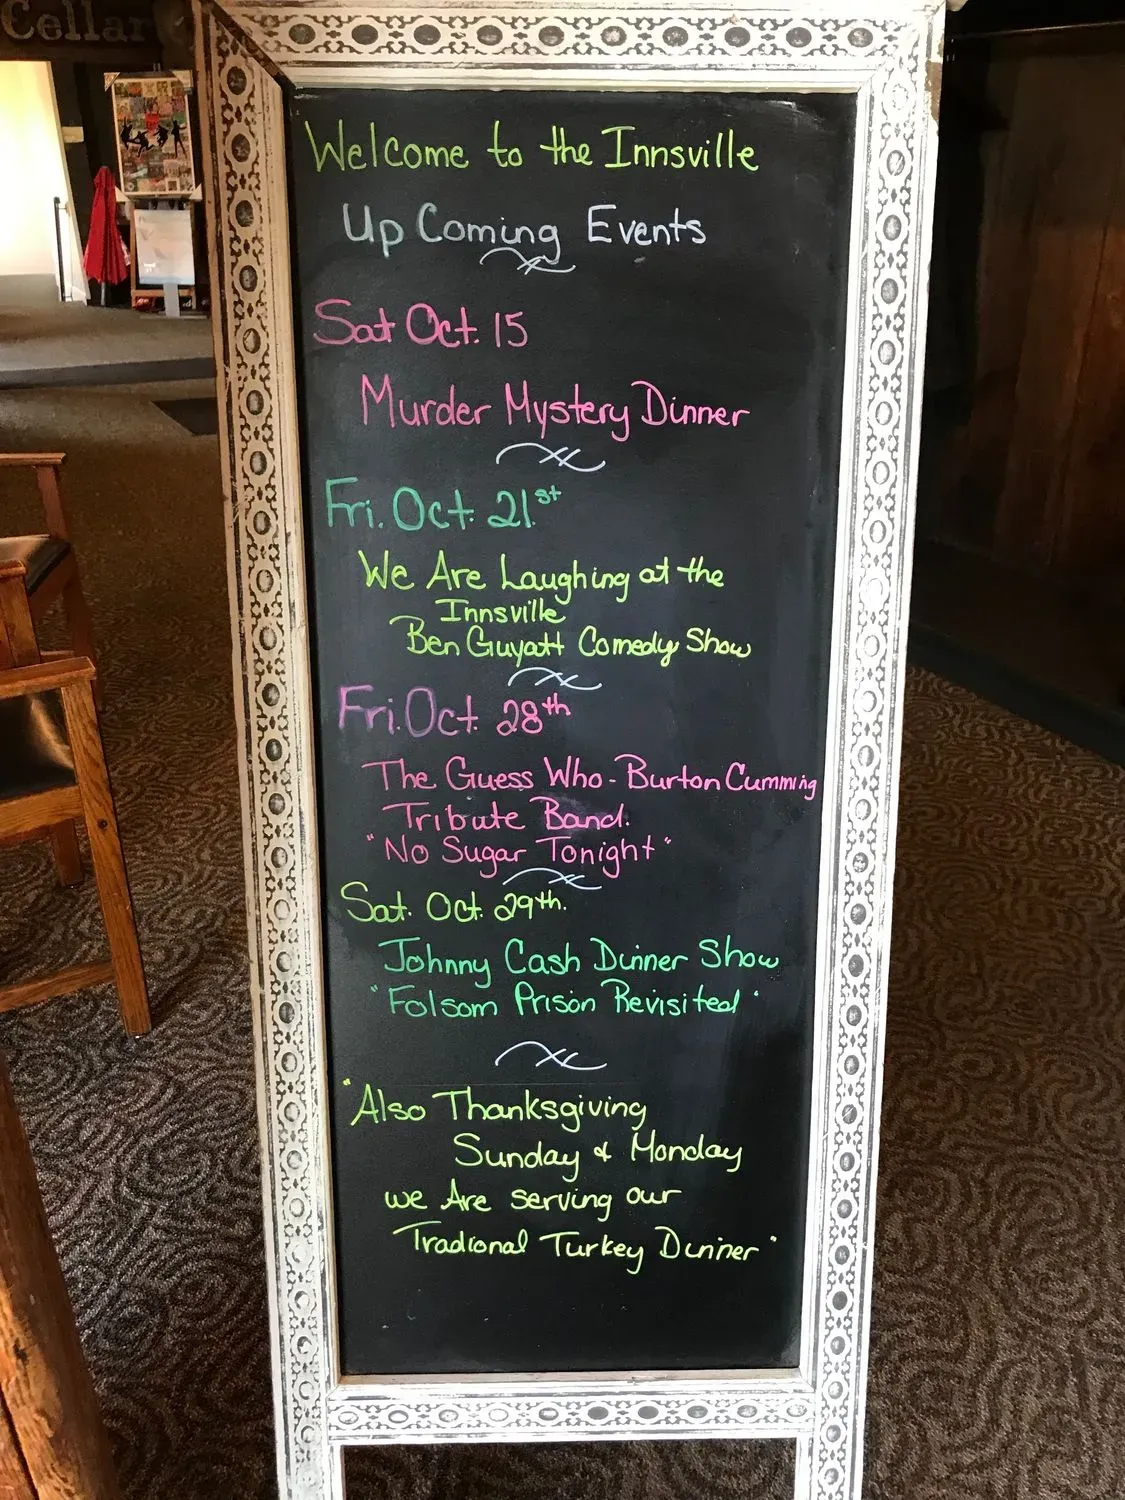 Cellar
Welcome to the Innsville
Up Coming Events
Sat Oct. 15
Murder Mystery Dinner
Fri. Oct. 21st
We Are Laughing at the
Innsville
Ben Guyatt Comedy Show
Fri. Oct 28th
The Guess Who - Burton Cumming
Tribute Band.
"No Sugar Tonight"
Sat. Oct. 29th.
Johnny Cash Dinner Show
"Folsom Prison Revisited"
"Also Thanksgiving
Sunday & Monday
we Are serving our
Tradional Turkey Dinner"